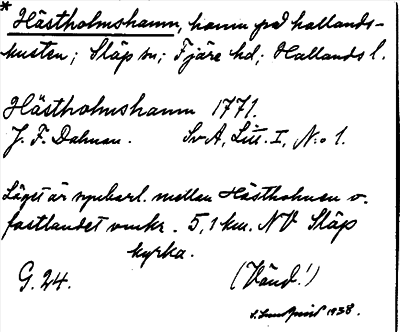 * Hästholmshamn, hamn på hallands-
kusten; Släp sn; Fjäre hd; Hallands l.
Hästholmshamn 1771.
J. F. Dalman. SvA, Litt. I, N:o 1.
Läget är uppenbarl. mellan Hästholmen o.
fastlandet omkr. 5,1 km. NV Släp
kyrka.
G. 24. (Vänd!)
1938.